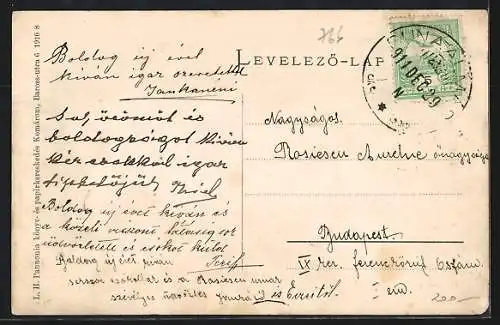 766
LEVELEZŐ-LAP
DUNA
911 DEC 29
Boldog új évet
kíván igaz szeretettel
Jankanéni
Sok örömöt és
boldogságot kíván
kéz csókkal igaz
tisztelőjük
Boldog új évet kíván és
a közeli viszont látásig sok
üdvözletet és csókot küld
Boldog új évet kíván
és a Rosiescu urnak
szívélyes üdvözlet és Erzsitől.
Nagyságos
Rosiescu Aurelné őnagysága
Budapest
IX ker. ferencz körút 6 szám.
em.
200-
L. H. Pannonia könyv- és papirkereskedés Komárom, Baross-utca 6 1910 8